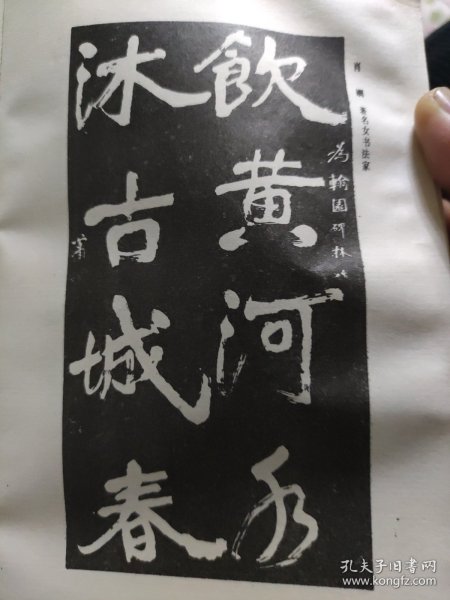 肖娴 著名女书法家
为翰园碑林书
飲黄河水
沐古城春
萧
孔夫子旧书网
www.kongfz.com